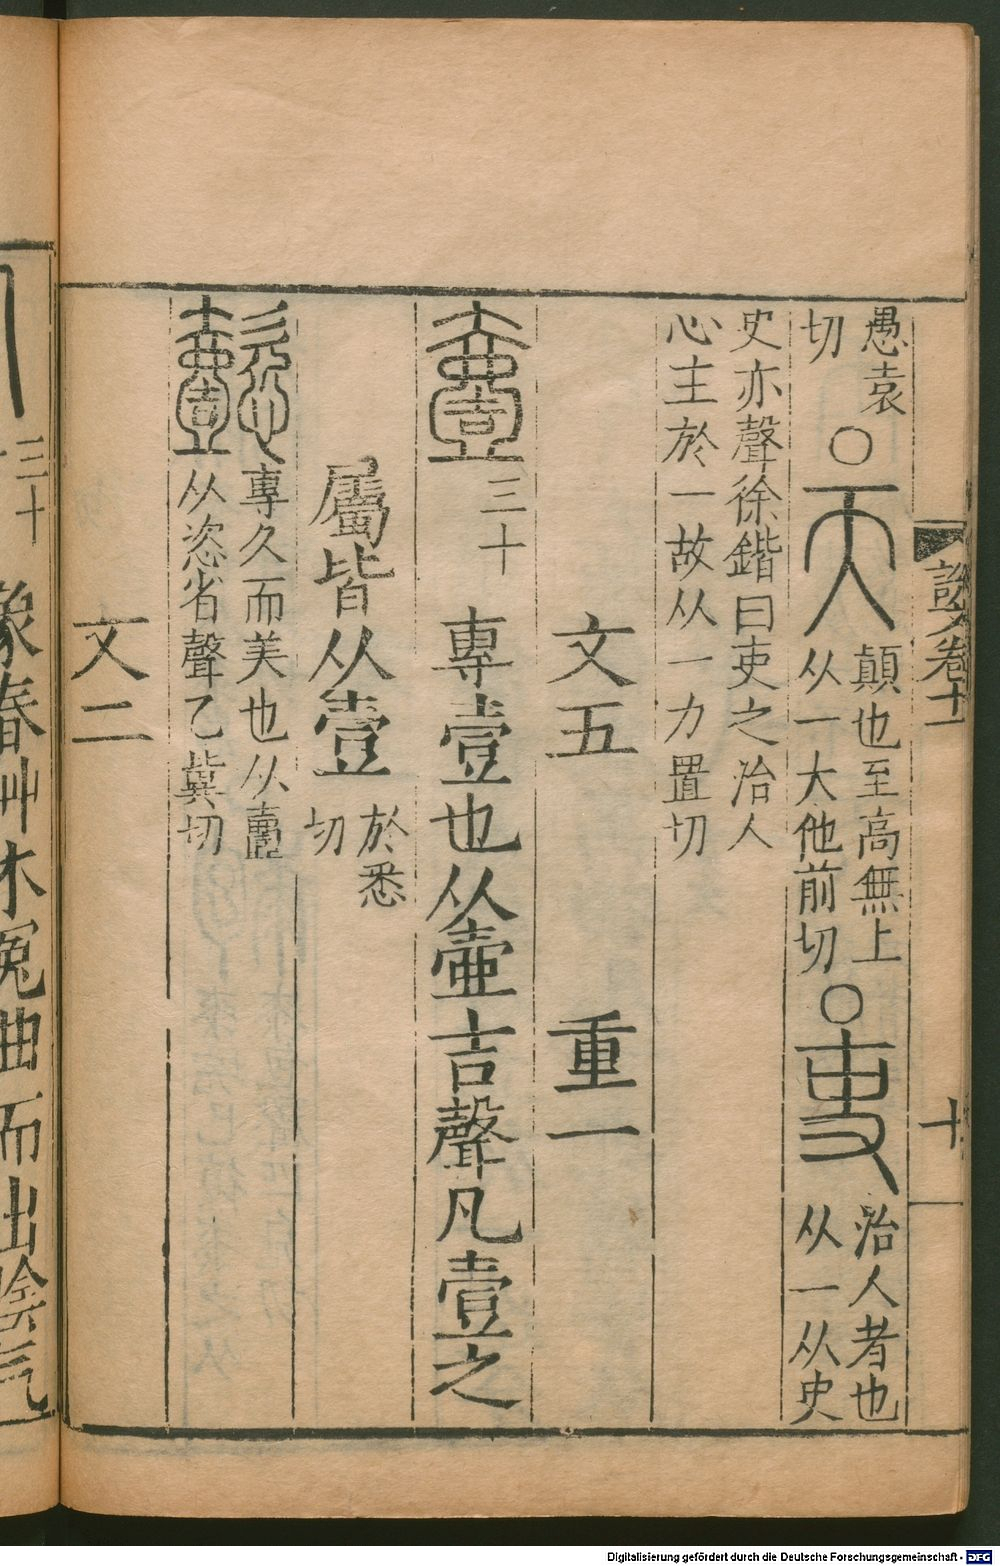 愚袁
切〇天
顛也至高無上
从一大他前切〇吏
治人者也
从一从史
史亦聲徐鍇曰吏之治人
心主於一故从一力置切
文五 重一
壹 三十 專壹也从壺吉聲凡壹之
屬皆从壹 於悉
切
懿 專久而美也从壹
从恣省聲乙冀切
文二
說文卷十一
十
三十
象春艸木冤曲而出陰气
Digitalisierung gefördert durch die Deutsche Forschungsgemeinschaft - DFG